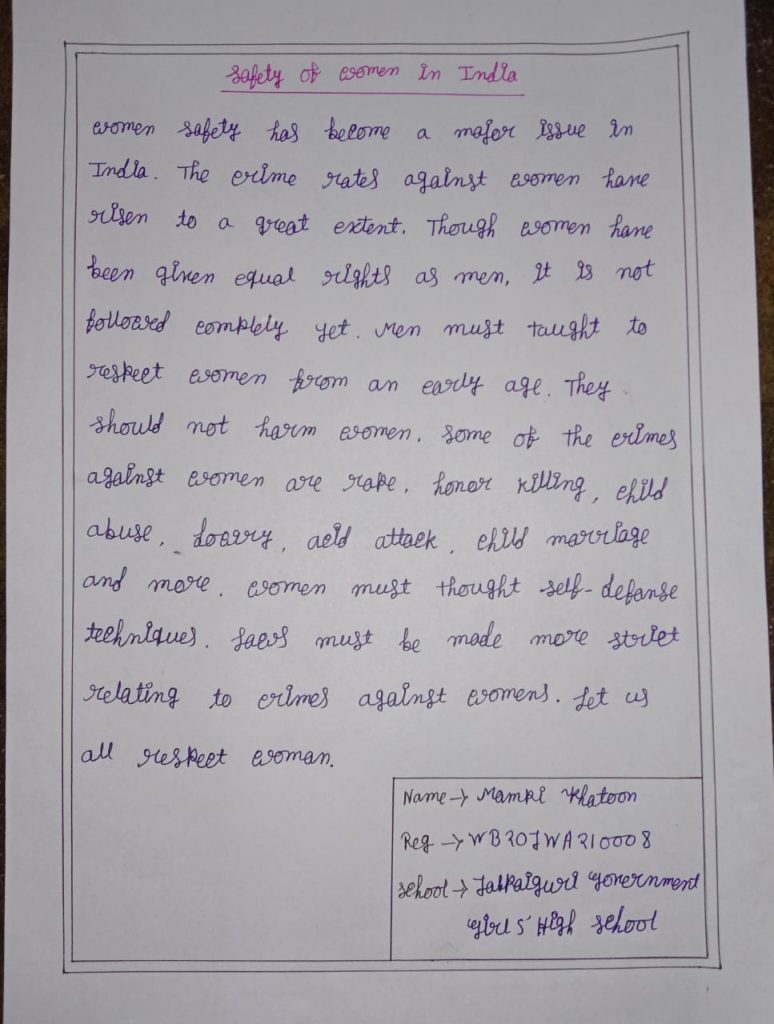 Safety of women in India
women safety has become a major issue in
India. The crime rates against women have
risen to a great extent. Though women have
been given equal rights as men, it is not
followed complely yet. Men must taught to
respect women from an early age. They
should not harm women. Some of the crimes
against women are rape, honor killing, child
abuse, dowry, acid attack, child marriage
and more. women must thought self-defanse
techniques. Laws must be made more strict
relating to crimes against womens. Let us
all respect woman.
Name → Mampi Khatoon
Reg → WB20JWA210008
School → Jalpaiguri Government
Girls' High School